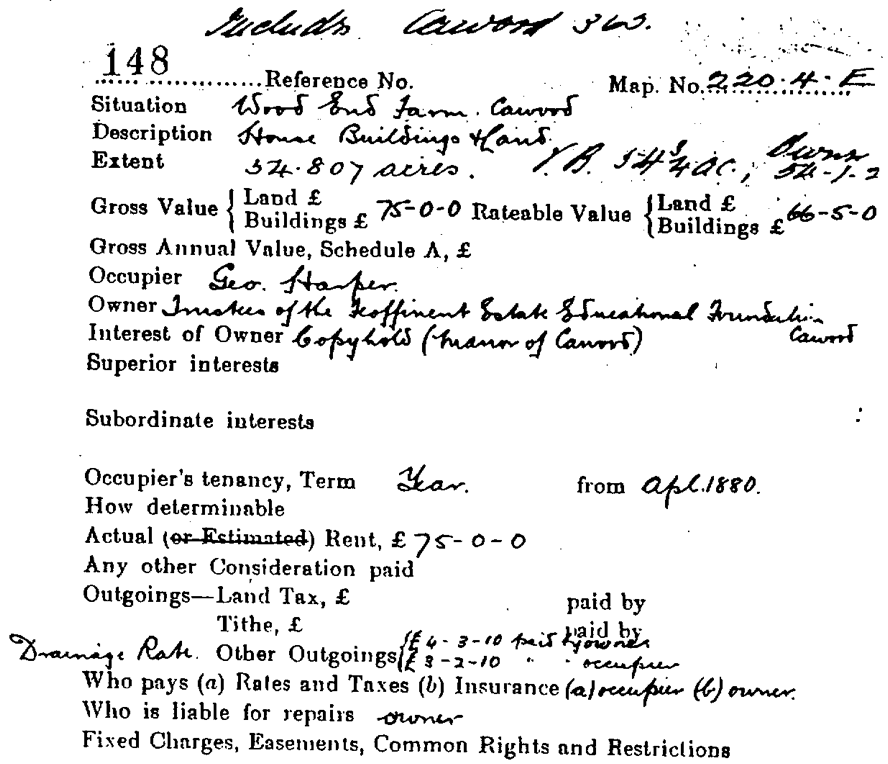 Includes Cawood 363.
148
Reference No. Map. No. 220.4.E
Situation Wood End Farm. Cawood
Description House Buildings & Land.
Extent 54.807 acres. V.B. 54 3/4 ac; Owner 54-1-2
Gross Value { Land £
Buildings £ 75-0-0 Rateable Value { Land £
Buildings £ 66-5-0
Gross Annual Value, Schedule A, £
Occupier Geo. Harper.
Owner Trustees of the Feoffment Estate Educational Foundation Cawood
Interest of Owner Copyhold (Manor of Cawood)
Superior interests
Subordinate interests
Occupier's tenancy, Term Year. from Apl. 1880.
How determinable
Actual (or Estimated) Rent, £ 75-0-0
Any other Consideration paid
Outgoings—Land Tax, £ paid by
Tithe, £ paid by
Drainage Rate. Other Outgoings { £4-3-10 paid by owner
£3-2-10 " " occupier
Who pays (a) Rates and Taxes (b) Insurance (a) occupier (b) owner.
Who is liable for repairs owner
Fixed Charges, Easements, Common Rights and Restrictions